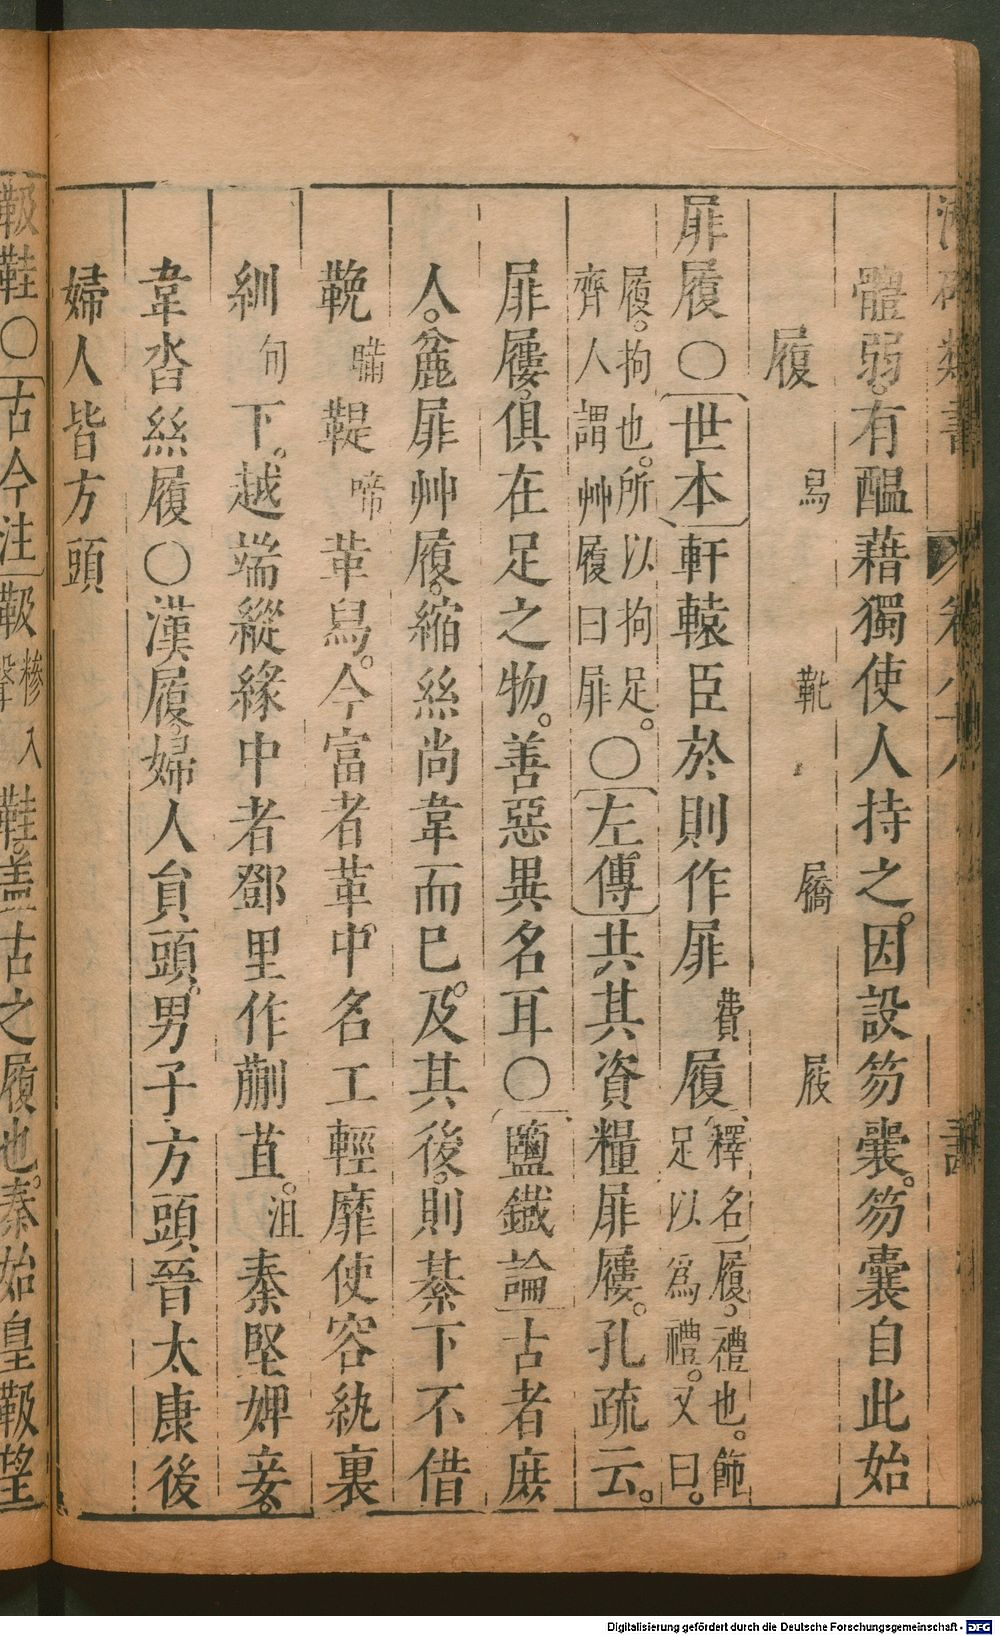 體弱。有醞藉獨使人持之。因設笏囊。笏囊自此始
履 舄 靴 屩 屐
扉履〇世本軒轅臣於則作扉費履釋名履。禮也。飾足以爲禮。又曰。
履。拘也。所以拘足。齊人謂艸履曰扉〇左傳共其資糧扉屨。孔疏云。
扉屨。俱在足之物。善惡異名耳〇鹽鐵論古者庶
人。麄扉艸履。縮絲尚韋而已。及其後。則綦下不借
鞔鞮啼革舄。今富者革中。名工輕靡使容紈裏
紃句下。越端縱緣中者鄧里作蒯苴。沮秦堅婢妾。
韋沓絲履〇漢履。婦人負頭。男子方頭晉太康後
婦人皆方頭
靸鞋〇古今注靸入聲鞋。盖古之履也。秦始皇靸望
Digitalisierung gefördert durch die Deutsche Forschungsgemeinschaft - DFG